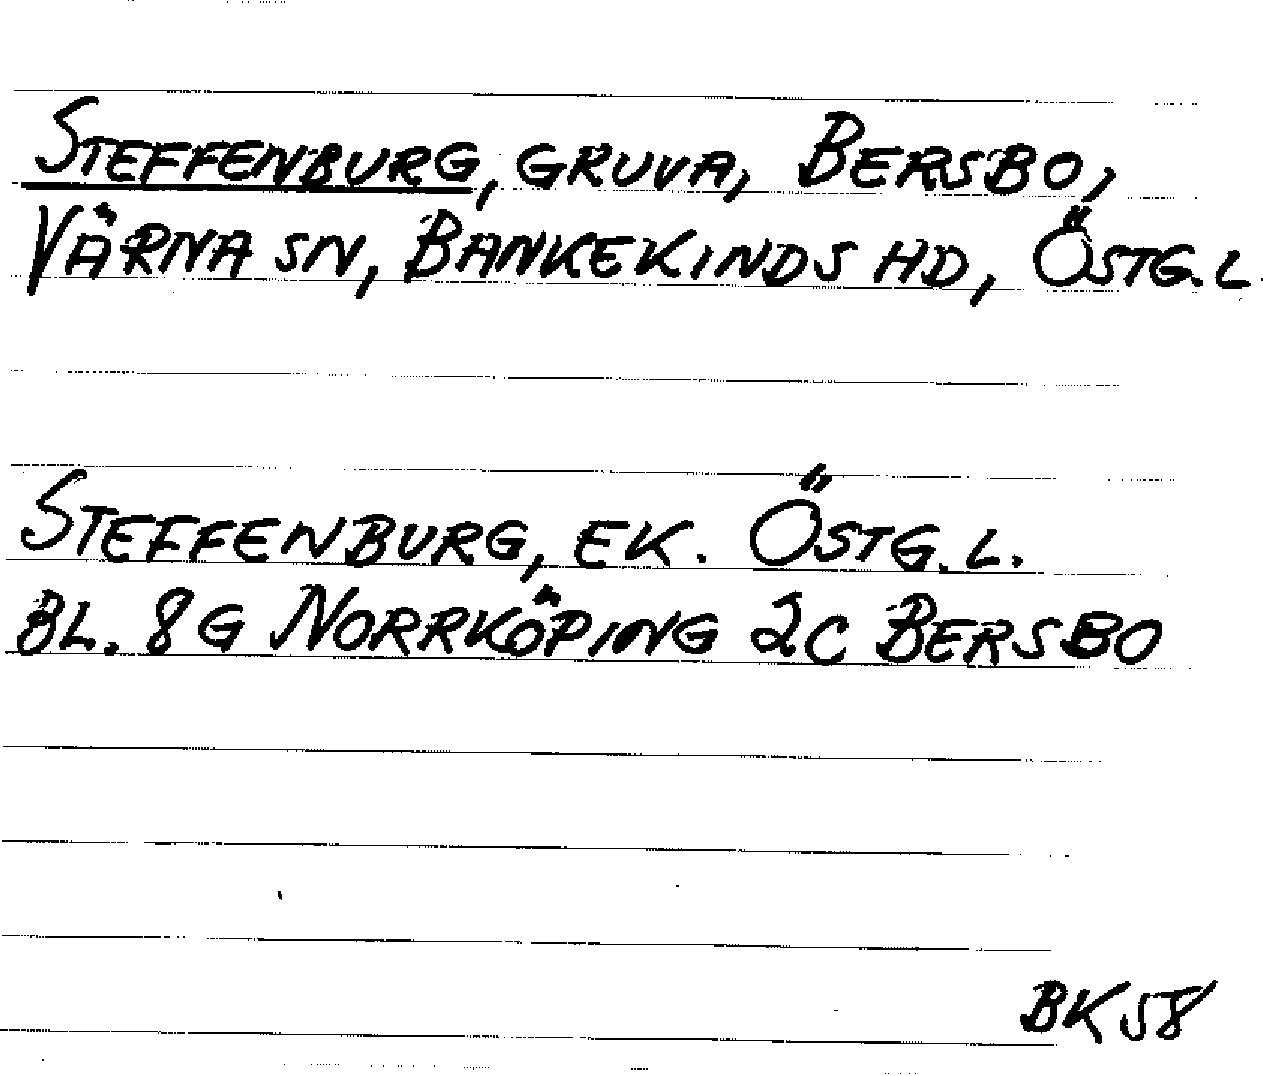 STEFFENBURG, GRUVA, BERSBO,
VÄRNA SN, BANKEKINDS HD, ÖSTG. L.
STEFFENBURG, EK. ÖSTG. L.
BL. 8G NORRKÖPING 2C BERSBO
BK58